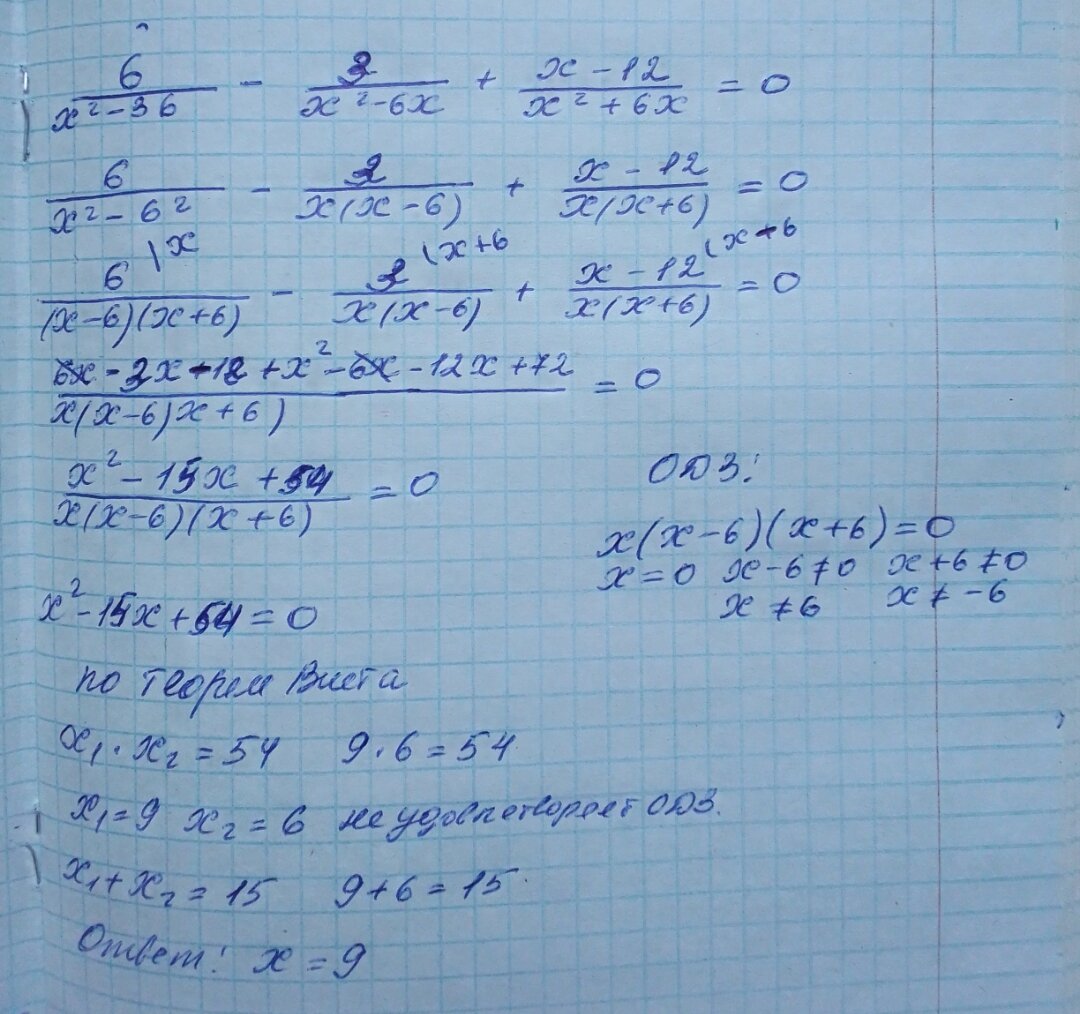 6/(x²-36) - 3/(x²-6x) + (x-12)/(x²+6x) = 0
6/(x²-6²) - 3/(x(x-6)) + (x-12)/(x(x+6)) = 0
6\x/((x-6)(x+6)) - 3(x+6/(x(x-6)) + x-12(x-6/(x(x+6)) = 0
(6x-3x-18+x²-6x-12x+72)/(x(x-6)x+6)) = 0
(x²-15x+54)/(x(x-6)(x+6)) = 0
ОДЗ:
x(x-6)(x+6)=0
x=0 x-6≠0 x+6≠0
x≠6 x≠-6
x²-15x+54=0
по теорем Виета
x₁·x₂=54 9·6=54
x₁=9 x₂=6 не удовлетворяет ОДЗ.
x₁+x₂=15 9+6=15
Ответ: x=9